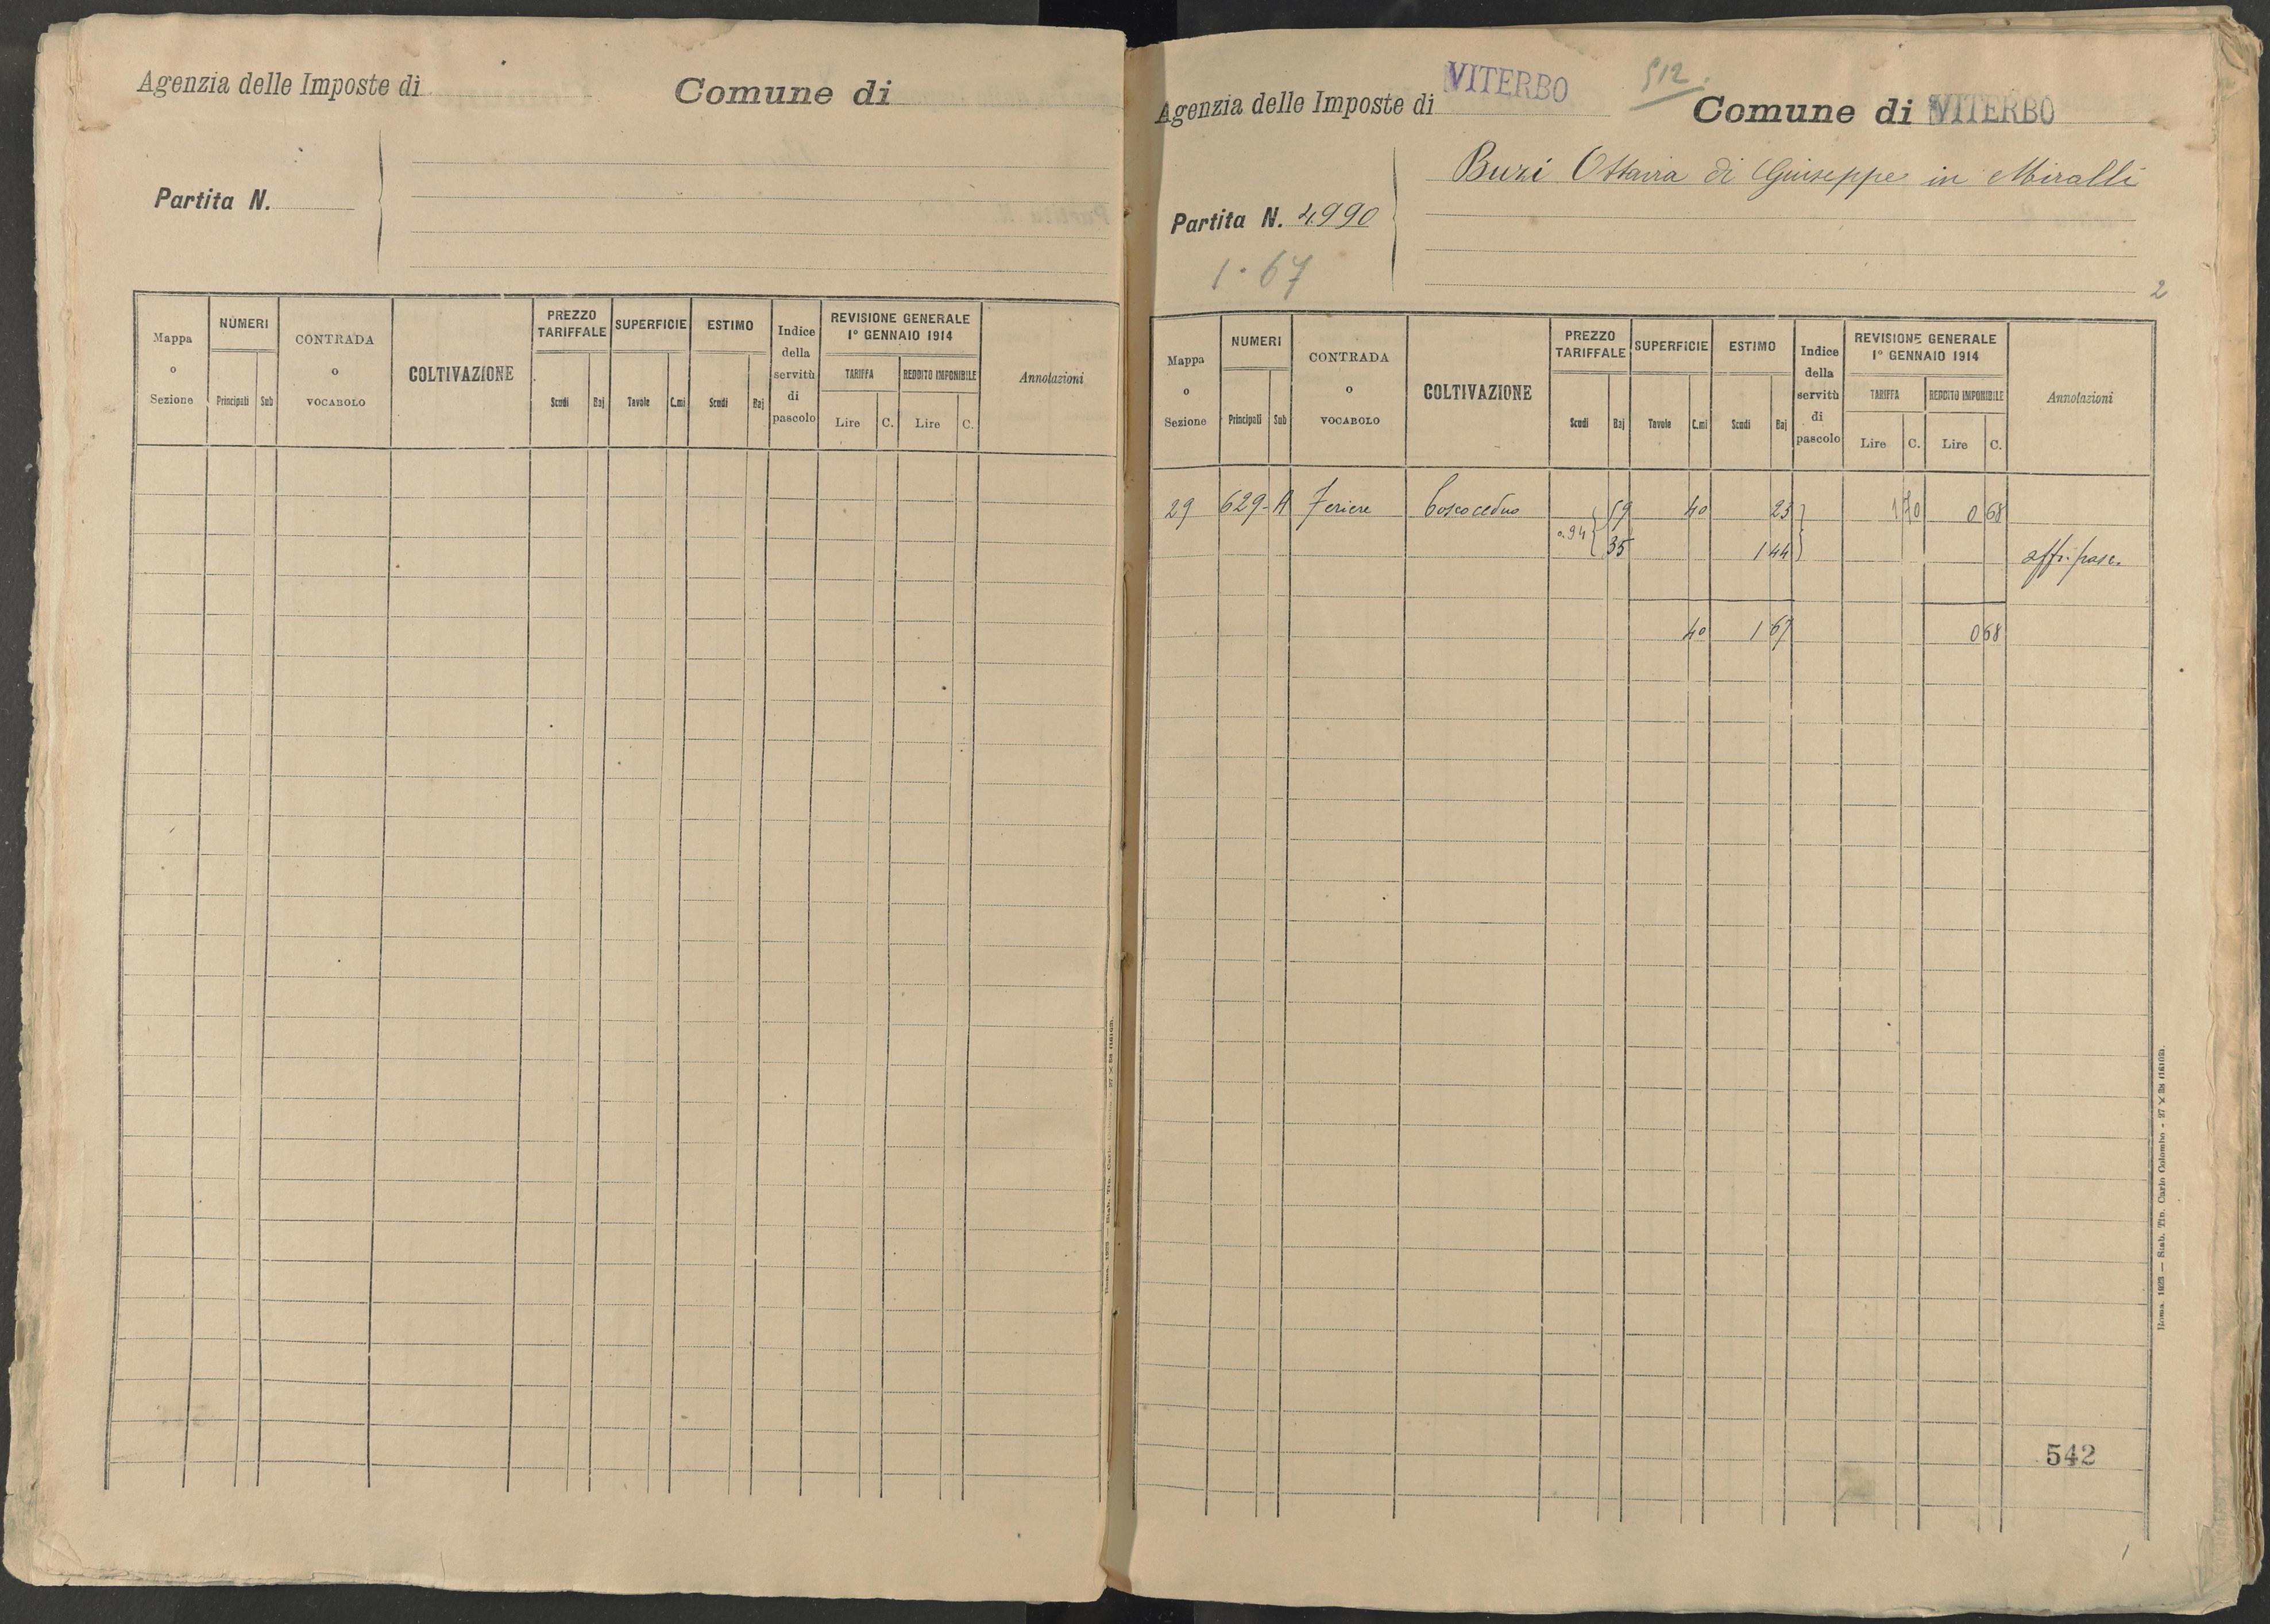 Agenzia delle Imposte di
Comune di
Partita N.
Mappa o Sezione
NUMERI
Principali
Sub
CONTRADA o VOCABOLO
COLTIVAZIONE
PREZZO TARIFFALE
Scudi
Baj
SUPERFICIE
Tavole
C.mi
ESTIMO
Scudi
Baj
Indice della servitù di pascolo
REVISIONE GENERALE
1° GENNAIO 1914
TARIFFA
REDDITO IMPONIBILE
Lire
C.
Lire
C.
Annotazioni
Agenzia delle Imposte di VITERBO
512.
Comune di VITERBO
Buzi Ottavia di Giuseppe in Miralli
Partita N. 4990
1.67
2
Mappa o Sezione
NUMERI
Principali
Sub
CONTRADA o VOCABOLO
COLTIVAZIONE
PREZZO TARIFFALE
Scudi
Baj
SUPERFICIE
Tavole
C.mi
ESTIMO
Scudi
Baj
Indice della servitù di pascolo
REVISIONE GENERALE
1° GENNAIO 1914
TARIFFA
REDDITO IMPONIBILE
Lire
C.
Lire
C.
Annotazioni
29 629-A Feriere boscoceduo 59 40 23 1 70 0 68
0.94 35 1 44 affr. pasc.
40 1 67 0 68
542
Roma, 1923 — Stab. Tip. Carlo Colombo - 27 × 38